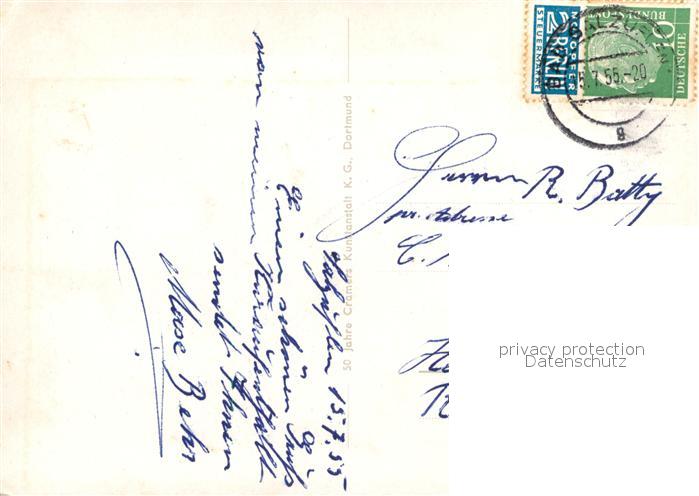 NOTOPFER
2 BERLIN
STEUERMARKE
DEUTSCHE
BUNDESPOST
10
BAD SALZUFLEN
15.7.55.-20
g
50 Jahre Cramers Kunstanstalt K. G., Dortmund
Salzuflen 15.7.55
Einen schönen Gruß
von meinem Kuraufenthalt
sendet Ihnen
Behr
Herrn R. Batty
pr. Adresse
C.
privacy protection
Datenschutz